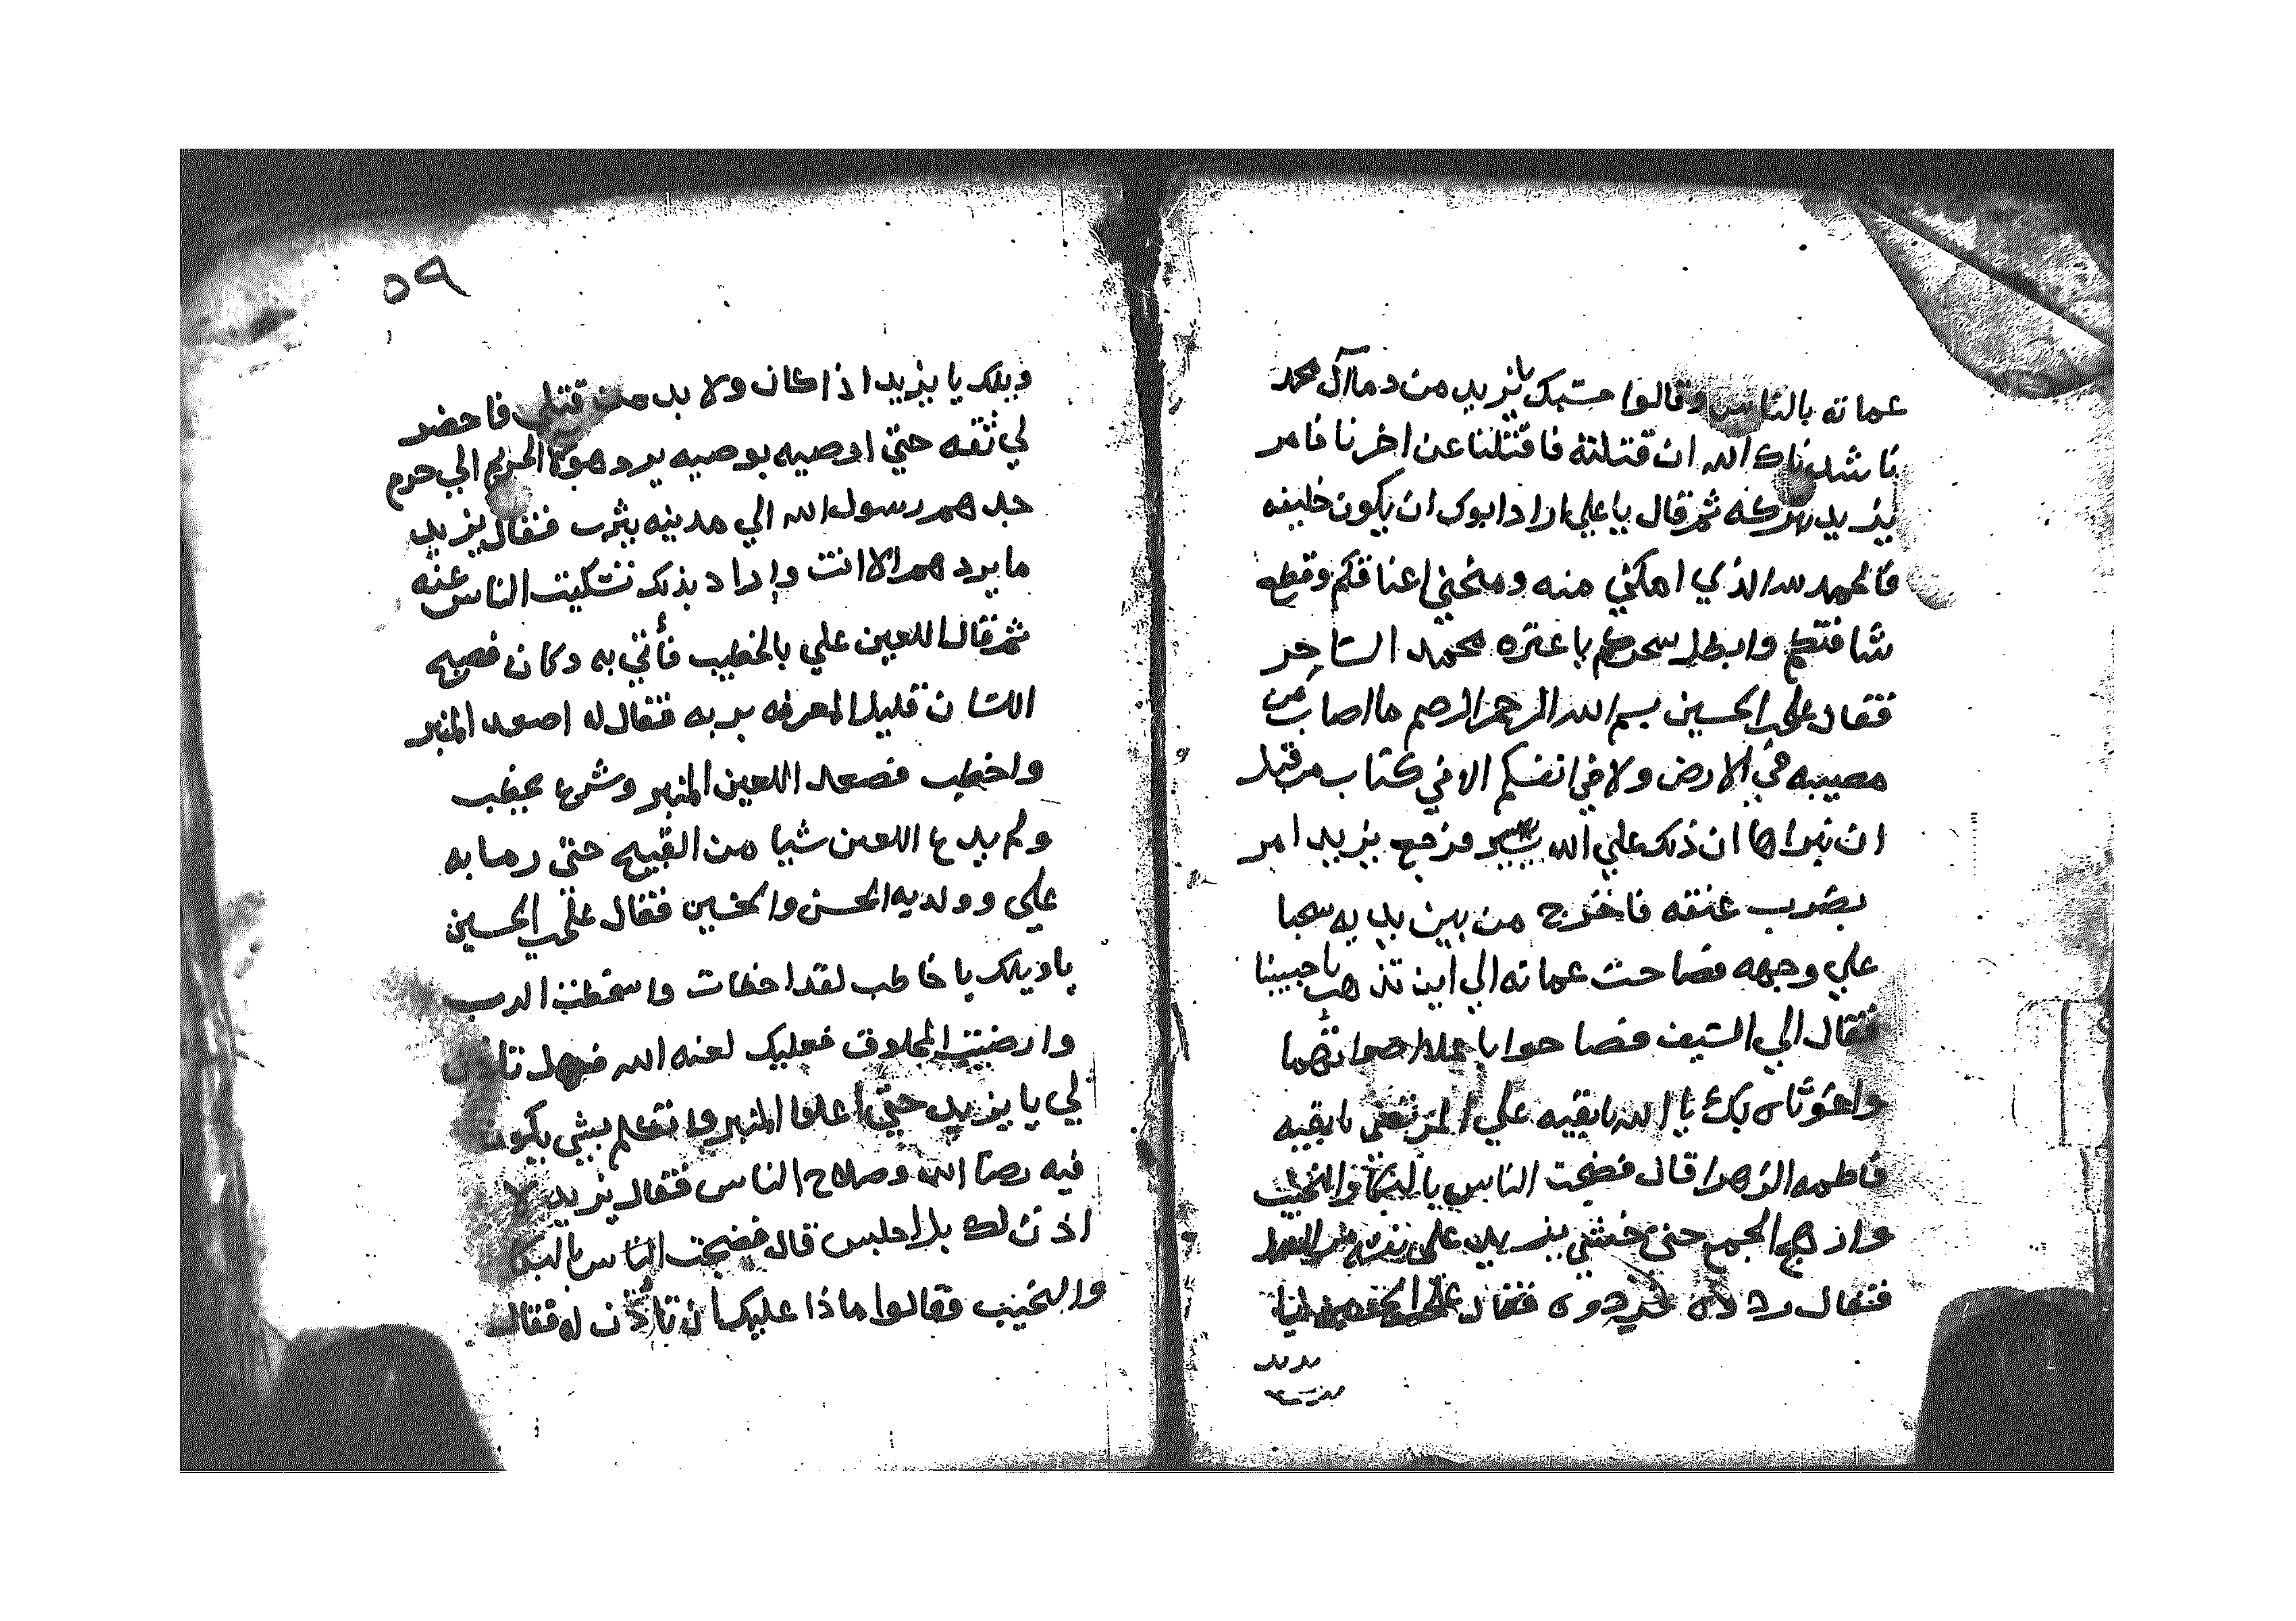 عماته بالناس وقالوا حسبك يا يزيد من دما آل محمد
ناشدناك الله ان قتلته فاقتلنا عن اخرنا فامر
يزيد بتركه ثم قال يا علي اراد ابوك ان يكون خليفه
فالحمد لله الذي امكني منه ومنحني اعناقكم وقطع
شافتكم وابطل سحركم يا عتره محمد الساحر
فقال علي بن الحسين بسم الله الرحمن الرحيم ما اصاب من
مصيبه في الارض ولا في انفسكم الا في كتاب من قبل
ان نبراها ان ذلك علي الله يسير فزجع يزيد امر
بضرب عنقه فاخرج من بين يديه سحبا
علي وجهه فصاحت عماته الي اين تذهب يا حبيبنا
فقال الي السيف فصاحوا با علا اصواتهما
واغوثاه بك يا الله يا بقيه علي المرتضى يا بقيه
فاطمه الزهرا قال فضجت الناس بالبكا والنحيب
وازهج الجمع حتى خشي يزيد على نفسه
فقال ردوه فردوه فقال علي بن الحسين
ويلك يا يزيد اذا كان ولا بد من قتلي فاحضر
لي ثقه حتى اوصيه بوصيه يرد هولا الحريم الي حرم
جدهم رسول الله الي مدينه يثرب فقال يزيد
ما يردهم الا انت واراد بذلك تسكيت الناس عنه
ثم قال اللعين علي بالخطيب فأتي به وكان فصيح
اللسان قليل المعرفه بربه فقال له اصعد المنبر
واخطب فصعد اللعين المنبر وشرع يخطب
ولم يدع اللعين شيا من القبيح حتى رما به
علي وولديه الحسن والحسين فقال علي بن الحسين
يا ويلك يا خاطب لقد اخطات واسخطت الرب
وارضيت المخلوق فعليك لعنه الله فهل تاذن
لي يا يزيد حتي اعلوا المنبر واتكلم بشي يكون
فيه رضا الله وصلاح الناس فقال يزيد لا
اذن لك بل اجلس قال فضجت الناس بالبكا
والنحيب وقالوا ماذا عليك ان تأذن له فقال
٥٩